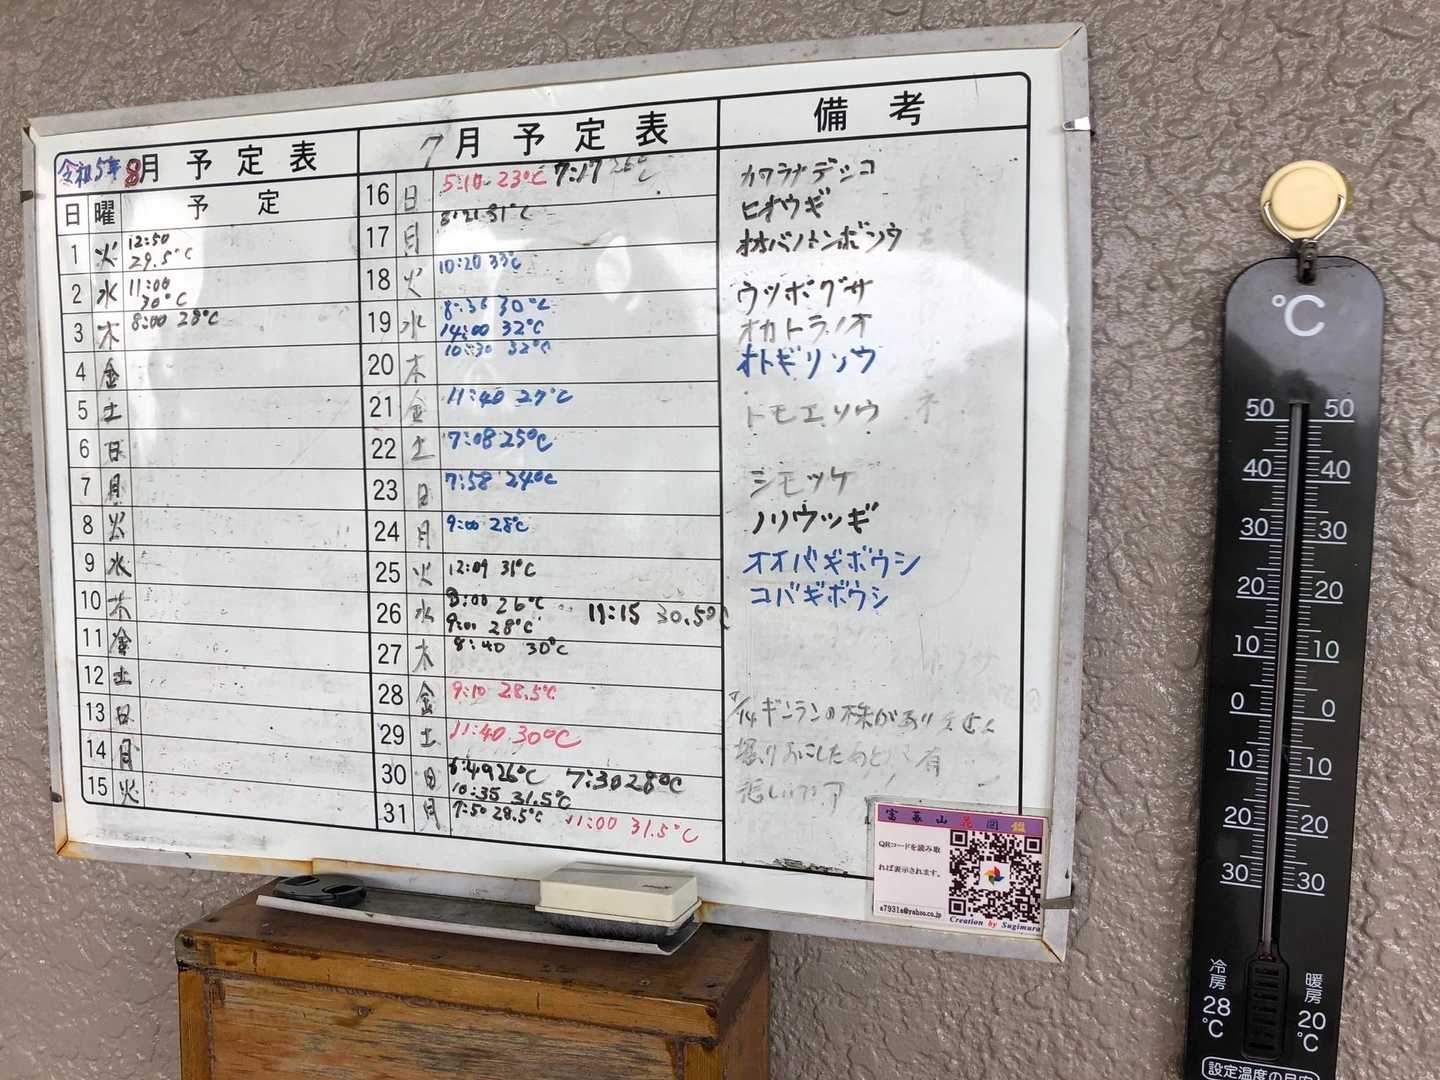 令和5年 8月 予 定 表
日 曜 予 定
1 火 12:50
29.5℃
2 水 11:00
30℃
3 木 8:00 28℃
4 金
5 土
6 日
7 月
8 火
9 水
10 木
11 金
12 土
13 日
14 月
15 火
7月 予 定 表
16 日 5:10 23℃ 7:17 26℃
17 月 31℃
18 火 10:20 33℃
19 水 30℃
14:00 32℃
20 木 10:30 32℃
21 金 11:40 27℃
22 土 7:08 25℃
23 日 7:58 24℃
24 月 9:00 28℃
25 火 12:09 31℃
26 水 8:00 26℃ 11:15 30.5℃
9:00 28℃
27 木 8:40 30℃
28 金 9:10 28.5℃
29 土 11:40 30℃
30 日 6:49 26℃ 7:30 28℃
10:35 31.5℃
31 月 7:50 28.5℃ 11:00 31.5℃
備 考
カワラナデシコ
ヒオウギ
オオバノトンボソウ
ウツボグサ
オカトラノオ
オトギリソウ
トモエソウ
シモツケ
ノリウツギ
オオバギボウシ
コバギボウシ
7/14 ギンランの株がありません
掘りおこしたあと 有
悲しい
富幕山花図鑑
QRコードを読み取
れば表示されます。
s7931s@yahoo.co.jp
Creation by Sugimura
℃
50 50
40 40
30 30
20 20
10 10
0 0
10 10
20 20
30 30
冷房
28
℃
暖房
20
℃
設定温度の目安